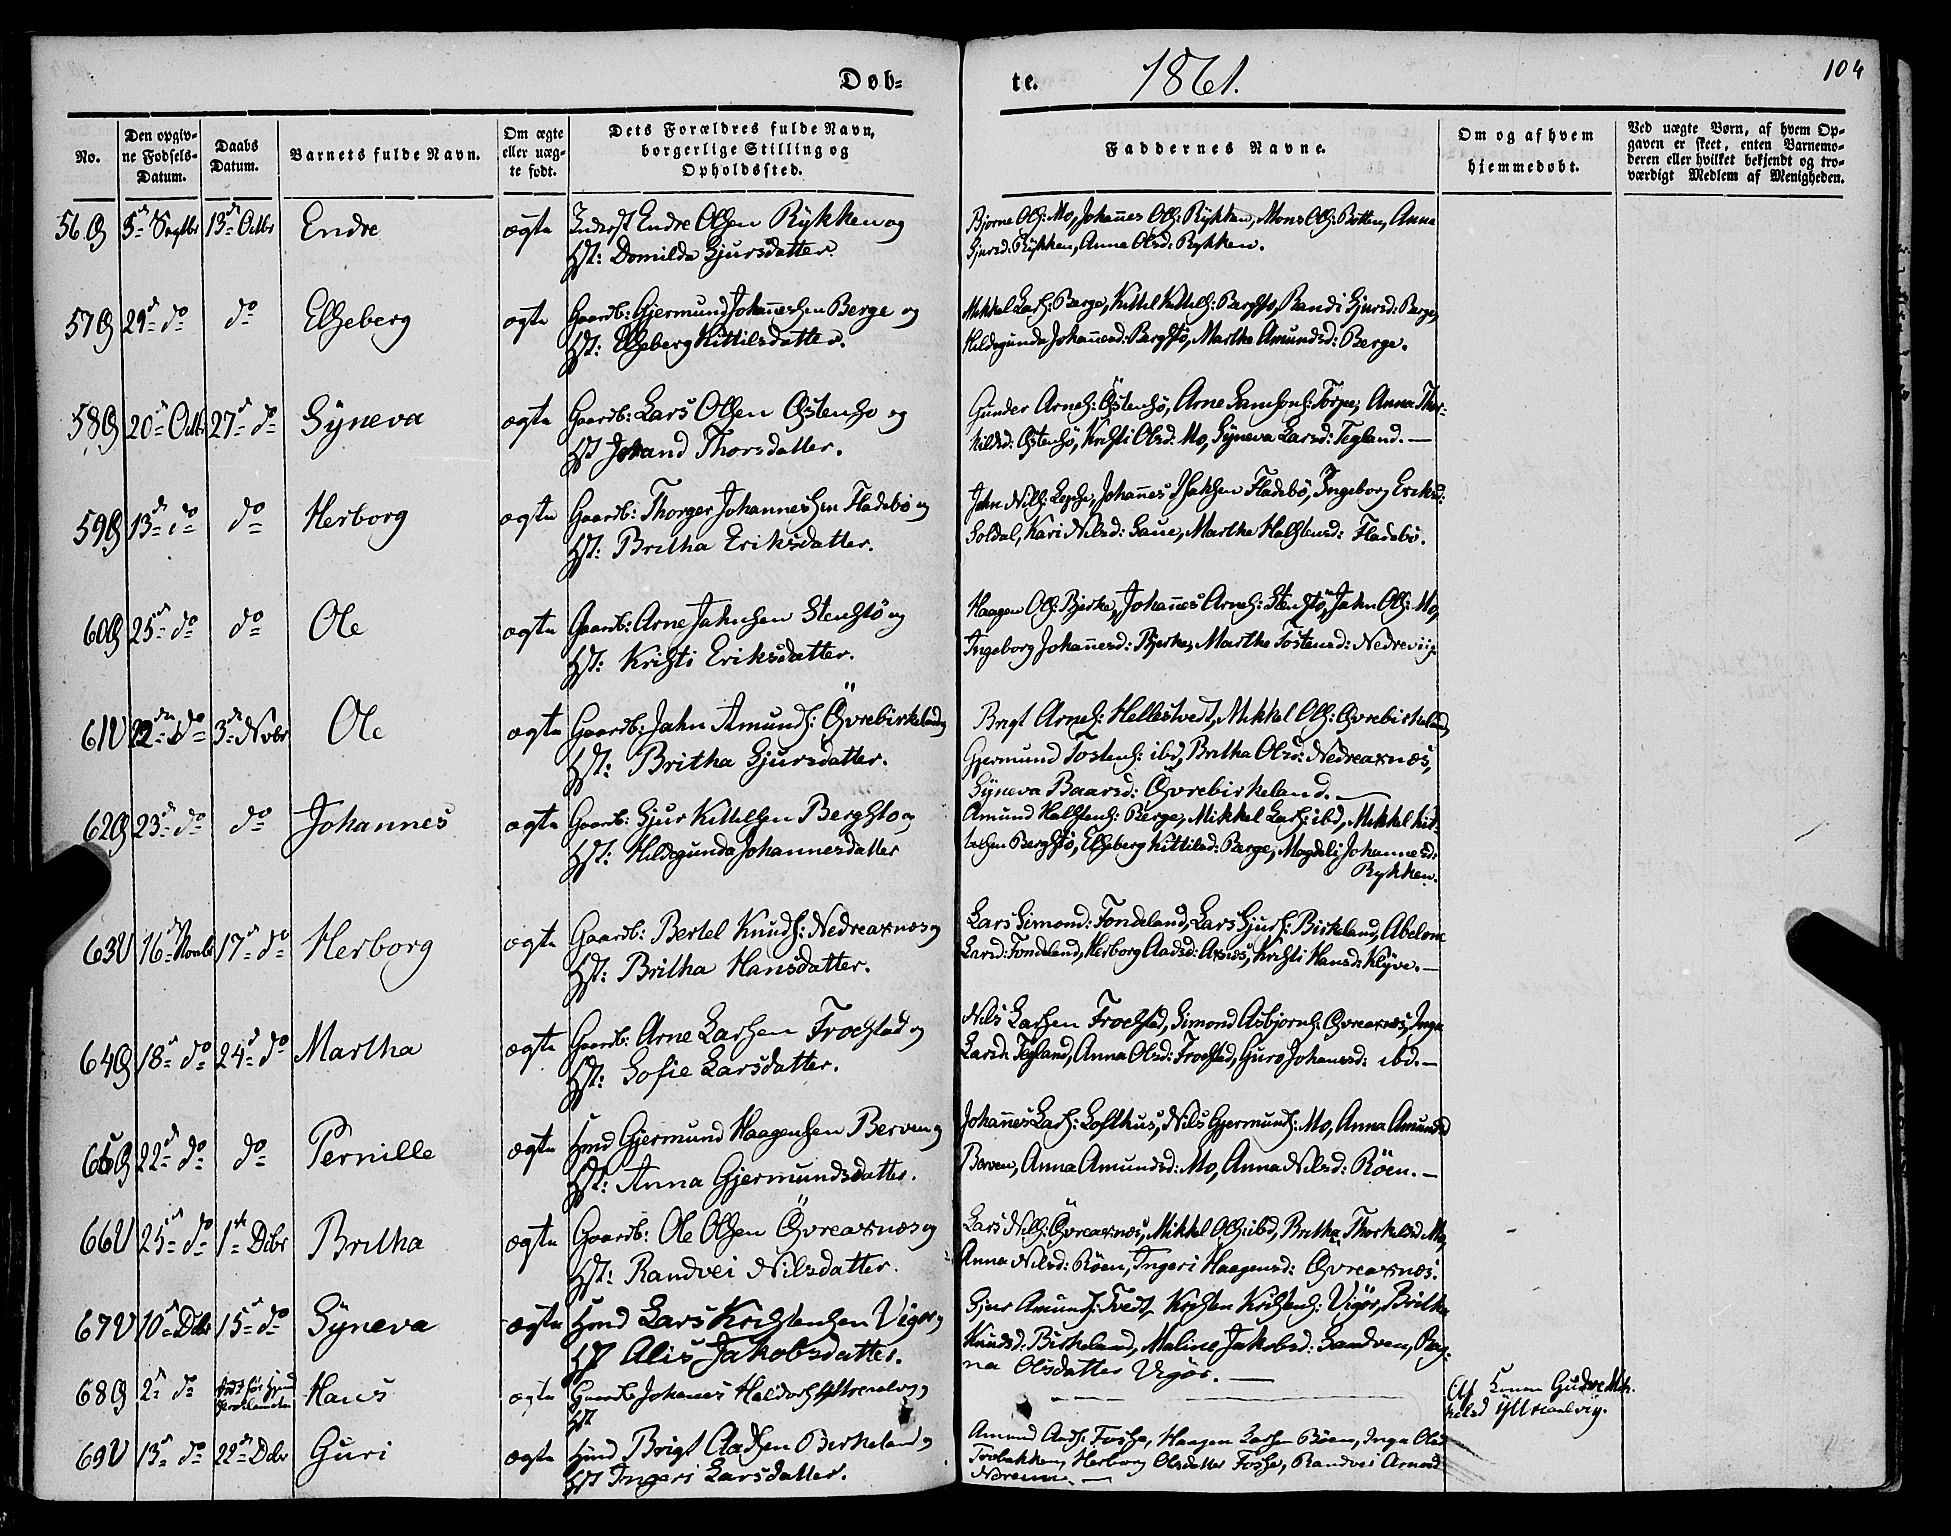 Døb-
te.
1861.
104
No.
Den opgiv-
ne Fødsels-
Datum.
Daabs
Datum.
Barnets fulde Navn.
Om ægte
eller uæg-
te født.
Dets Forældres fulde Navn,
borgerlige Stilling og
Opholdssted.
Faddernes Navne.
Om og af hvem
hjemmedøbt.
Ved uægte Børn, af hvem Op-
gaven er skeet, enten Barnemo-
deren eller hvilket bekjendt og tro-
værdigt Medlem af Menigheden.
56 G 5d Septbr 13d Octbr Endre ægte Inderst Endre Olsen Rykken og
Hst: Domilda Sjursdatter.
Bjorne Ols: Mo, Johannes Ols: Rykken, Mons Ols: Botten, Anna
Sjursd: Rykken, Anna Olsd: Rykken.
57 G 29d do do Elseberg ægte Gaardb: Gjermund Johannessen Berge og
Hst: Elseberg Kittilsdatter.
Mikkel Lars: Berge, Kittel Kittels: Bergstø, Randi Sjursd: Berge,
Hildegunda Johannesd: Bergstø, Martha Amundsd: Berge.
58 G 20d Octb. 27d do Syneva ægte Gaardb: Lars Olsen Østensø og
Hst Jorand Thorsdatter.
Gunder Arnes: Østensø, Arne Samsons: Torpe, Anna Thor-
kildsd: Østensø, Kristi Olsd: Mo, Syneva Larsd: Tegland. —
59 G 13d do do Herborg ægte Gaardb: Thorger Johannessen Fladebø og
Hst: Britha Eriksdatter.
Jahn Nils: Lepsø, Johannes Isaksen Fladebø, Ingeborg Eriksd:
Soldal, Kari Nilsd: Saue, Martha Halstensd: Fladebø.
60 G 25d do do Ole ægte Gaardb: Arne Jahnsen Stenstø og
Hst: Kristi Eriksdatter.
Haagen Ols: Bjerke, Johannes Arnes: Stenstø, Jahn Ols: Mo,
Ingeborg Johannesd: Bjerke, Martha Tostensd: Nedreviig.
61 U 22de do 3d Nvbr Ole ægte Gaardb: Jahn Amunds: Øvrebirkeland og
Hst: Britha Sjursdatter.
Brigt Arnes: Hellestvedt, Mikkel Ols: Øvrebirkeland
Gjermund Tostens: ibd, Britha Olsd: Nedreaxnæs,
Syneva Baarsd: Øvrebirkeland. —
62 G 23d do do Johannes ægte Gaardb: Sjur Kittelsen Bergstø og
Hst: Hildegunda Johannesdatter
Amund Halstens: Berge, Mikkel Lars: ibd, Mikkel Kit-
telsen Bergstø, Elseberg Kittilsd: Berge, Magdeli Johannesd:
Rykken.
63 U 16d Novbr 17d do Herborg ægte Gaardb: Bertel Knuds: Nedreaxnæs og
Hst: Britha Hansdatter.
Lars Simond: Tondeland, Lars Sjurs: Birkeland, Abelone
Larsd: Tondeland, Herborg Aadsd: Axnæs, Kristi Hansd: Klyve. —
64 G 18d do 24d do Martha ægte Gaardb: Arne Larsen Froestad og
Hst: Sofie Larsdatter.
Nils Larsen Froestad, Simond Asbjorns: Øvreaxnæs, Inga
Larsd: Tegland, Anna Olsd: Froestad, Guro Johannesd: ibd. —
65 G 22d do do Pernille ægte Hmd Gjermund Haagensen Berven og
Hst: Anna Gjermundsdatter.
Johannes Lars: Lofthus, Nils Gjermunds: Mo, Anna Amundsd
Berven, Anna Amundsd: Mo, Anna Nilsd: Røen. —
66 U 25d do 1ste Dcbr Britha ægte Gaardb: Ole Olsen Øvreaxnæs og
Hst: Randvei Nilsdatter.
Lars Nils: Øvreaxnæs, Mikkel Ols: ibd, Britha Thorkelsd Mo,
Anna Nilsd: Røen, Ingeri Haagensd: Øvreaxnæs.
67 U 10d Dcbr 15d do Syneva ægte Hmd Lars Kristensen Vigør og
Hst Alis Jakobsdatter.
Sjur Amunds: Tvedt, Kristen Kristens: Vigør, Britha
Knudsd: Birkeland, Maline Jakobsd: Sandven, Rag-
na Olsdatter Vigør. —
68 G 2d do Hans ægte Gaardb Johannes Haldors og
Hst
Af Konen Gudve Mik-
kelsd
69 U 13d do 22d Dcbr Guri ægte Hmd Brigt Aadsen Birkeland og
Hst Ingeri Larsdatter.
Amund Aads: Fosse, Haagen Larsen Røen, Inga Olsd
Trobakken, Herborg Olsdatter Fosse, Randvei Arnesd: